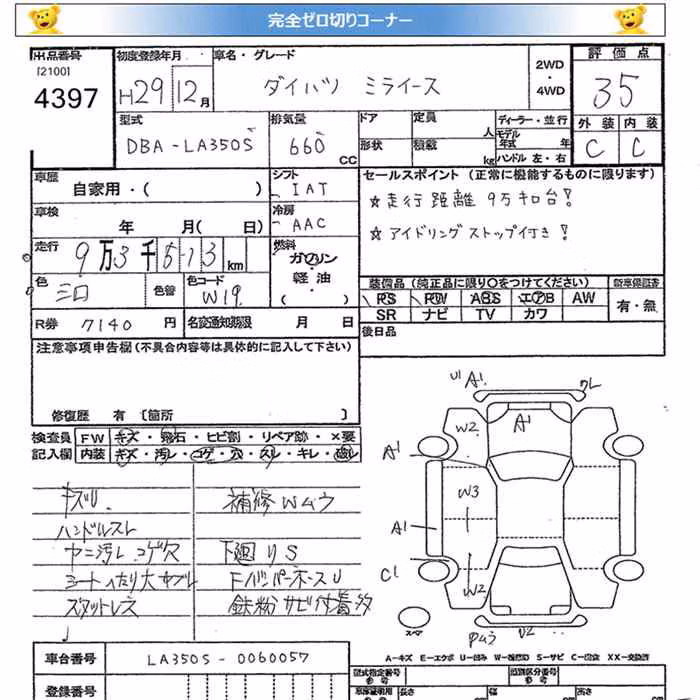 完全ゼロ切りコーナー
出品番号
[2100]
4397
初度登録年月
H29 12月
車名・グレード
ダイハツ ミライース
2WD
・
4WD
評価点
35
外装 内装
C C
型式
DBA-LA350S
排気量
660 CC
ドア
形状
定員
人
積載
kg
ディーラー・並行
モデル
年式 年
ハンドル 左・右
車歴
自家用・( )
シフト
IAT
セールスポイント (正常に機能するものに限ります)
☆走行距離 9万キロ台!
☆アイドリングストップ付き!
車検
年 月( 日)
冷房
AAC
走行
9万3千513km
燃料
ガソリン
・
軽油
・
( )
色
色替
色コード
W19
装備品 (純正品に限り○をつけてください)
PS PW ABS エアB AW
SR ナビ TV カワ
新車保証書
有・無
R券 7140 円
名変通知期限 月 日
後日品
注意事項申告欄(不具合内容等は具体的に記入して下さい)
修復歴 有 [箇所 ]
検査員
記入欄
FW キズ・飛石・ヒビ割・リペア跡・×要
内装 キズ・汚レ・コゲ・穴・スレ・キレ・破レ
キズU
補修Wムラ
ハンドルスレ
ヤニ汚レ コゲ穴
下廻りS
シートへたり大
FバンパーホースU
スタットレス
鉄粉 サビ付着多
U1 A1
クレ
W2
A1
A1
W3
A1
C1
W2
スペア
Pムラ
U2
A-キズ E-エクボ U-凹み W-補修跡 S-サビ C-腐食 XX-交換済
車台番号
LA350S-0060057
登録番号
型式指定番号
参考
類別区分番号
参考
車庫証明用
長さ
幅
高さ